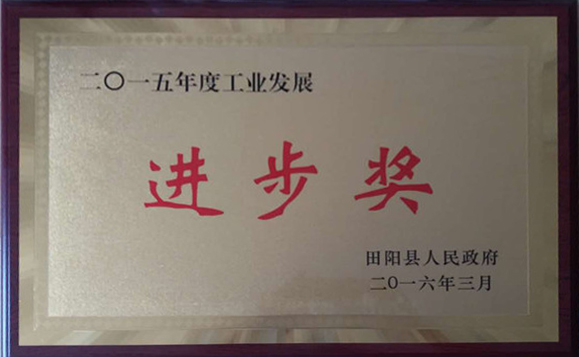 二〇一五年度工业发展
进步奖
田阳县人民政府
二〇一六年三月